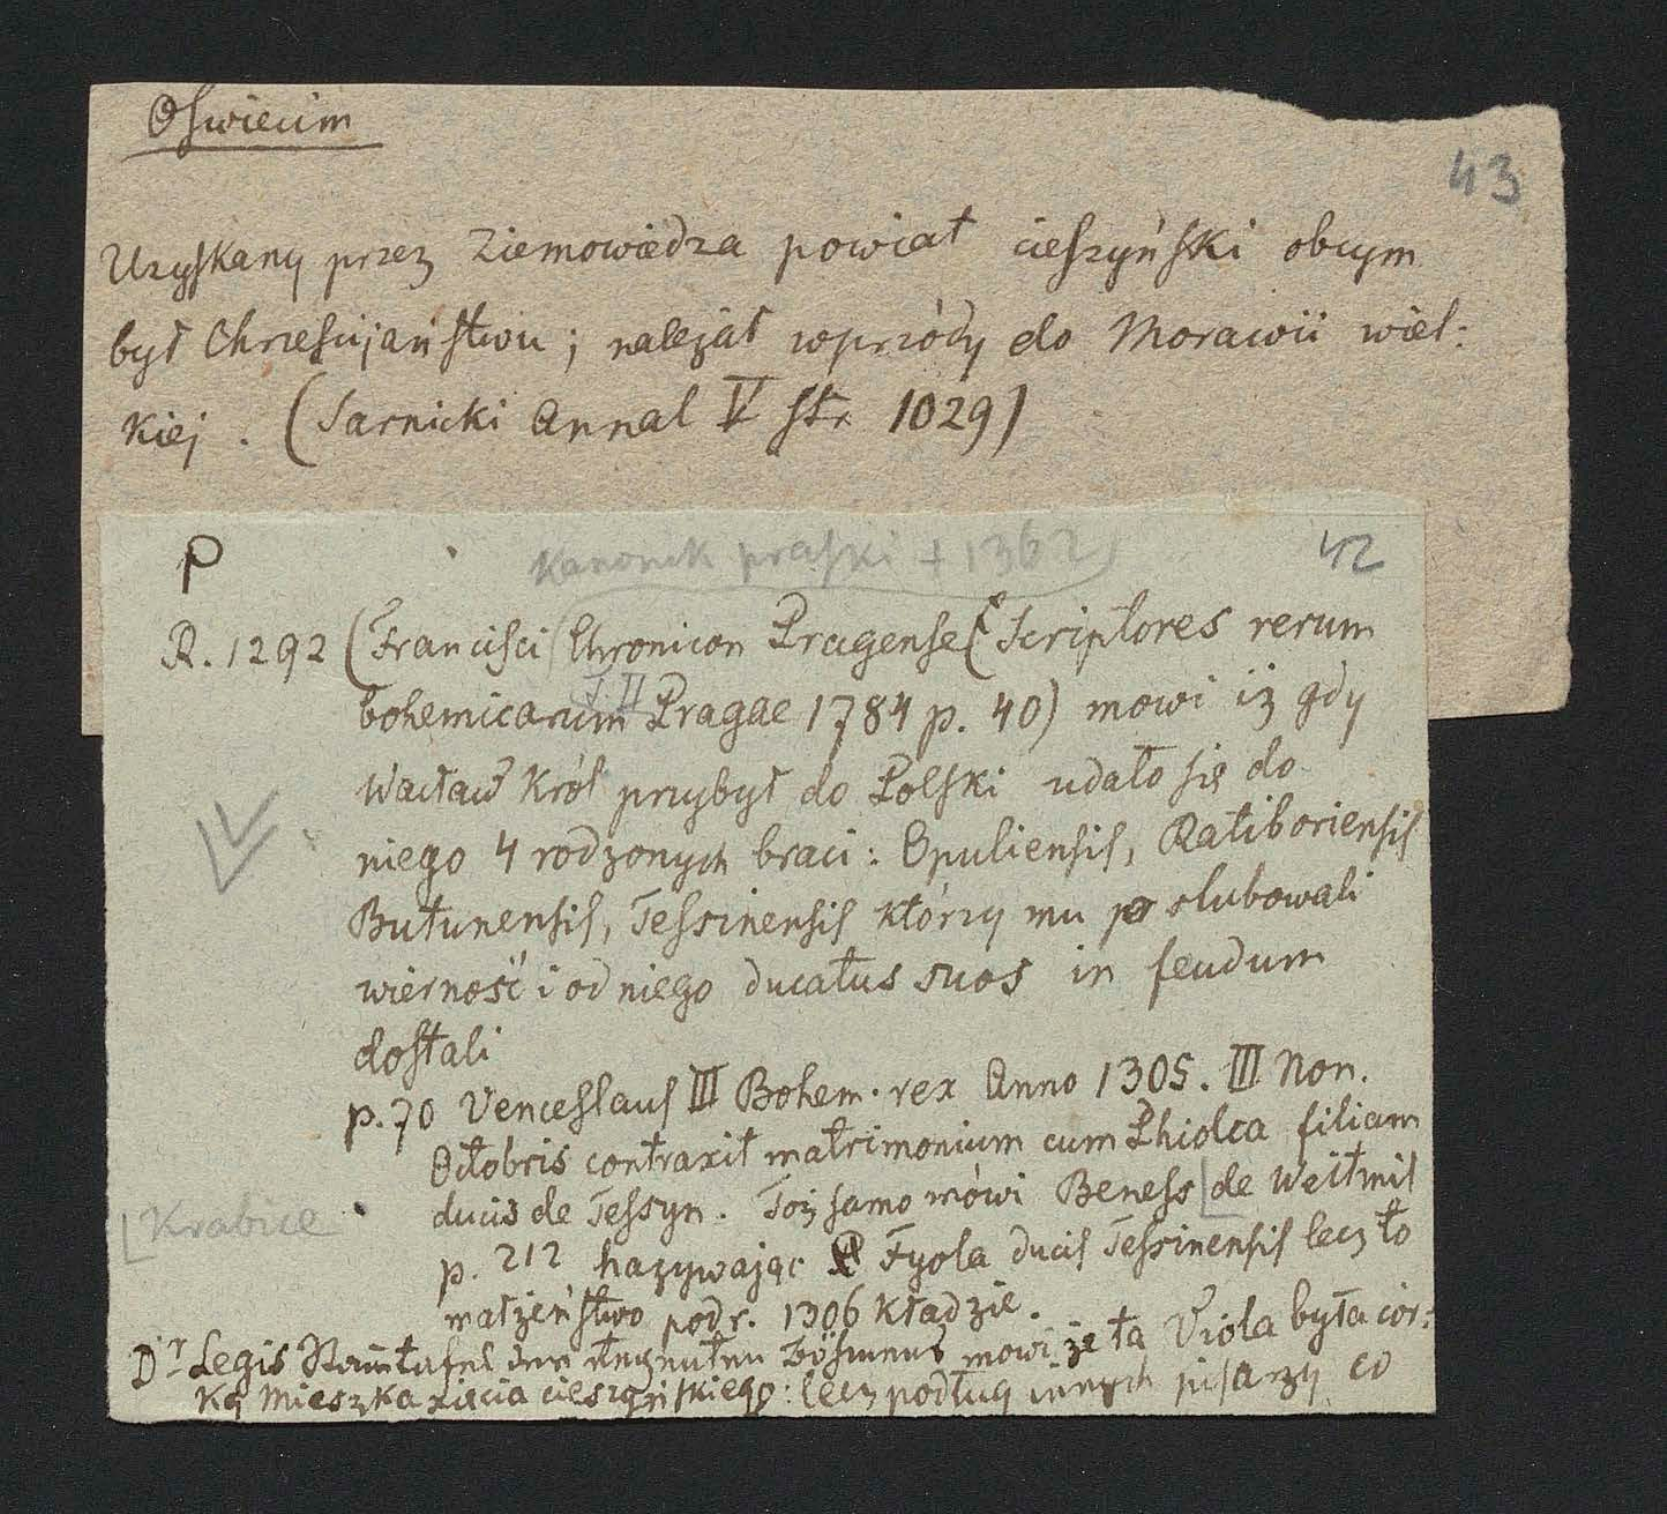 Oswiecim
43
Uzyskany przez Ziemowiedza powiat cieszyński obcym
był Chrześcijaństwu; należał wprzódy do Morawii wiel:
kiej. (Sarnicki Annal V str 1029)
P
kanonik praski + 1362
42
R. 1292 (Francisci Chronicon Pragense (Scriptores rerum
T. II
bohemicarum Pragae 1784 p. 40) mowi iż gdy
Wacław Król przybył do Polski udało się do
niego 4 rodzonych braci: Opuliensis, Ratiboriensis
Butunensis, Tessinensis którzy mu po slubowali
wierność i od niego ducatus suos in feudum
dostali
p. 70 Venceslaus III Bohem. rex Anno 1305. III Non.
Octobris contraxit matrimonium cum Phiolca filiam
ducis de Tessyn. Toż samo mówi Beness de Weitmil
Krabice
p. 212 nazywając Fyola ducis Tessinensis lecz to
małżeństwo pod r. 1306 kładzie.
Dr Legis mowi że ta Viola była cór:
ką Mieszka xięcia cieszyńskiego: lecz podług innych pisarzy co